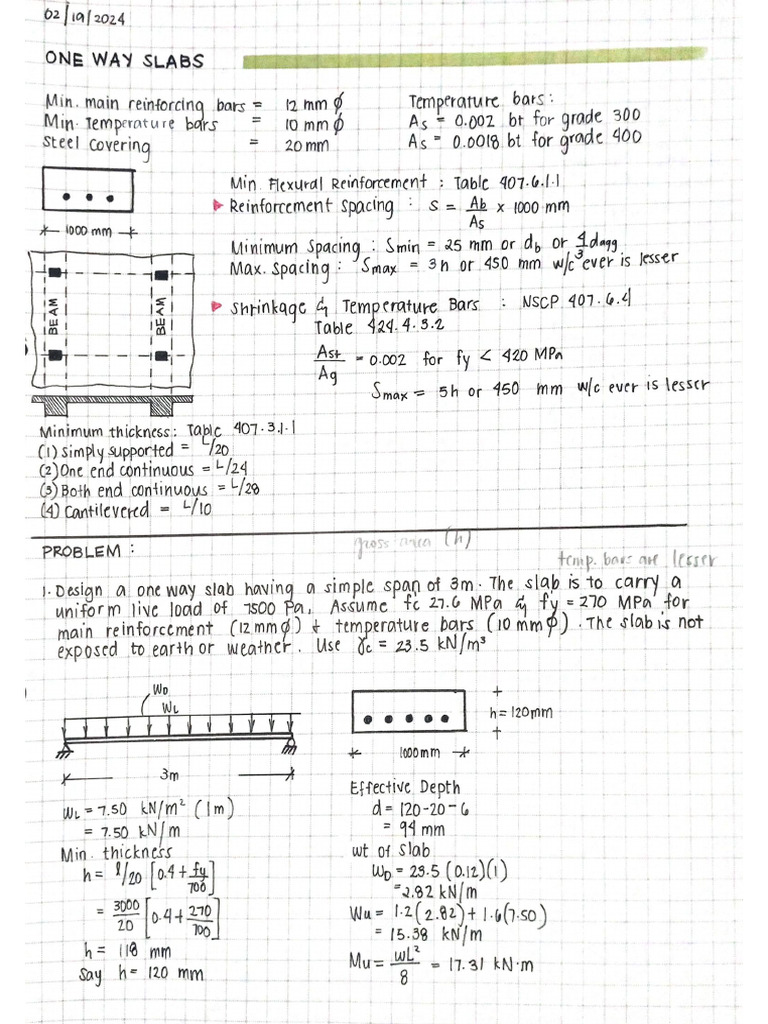 02/19/2024
ONE WAY SLABS
Min. main reinforcing bars = 12 mm ϕ
Min. Temperature bars = 10 mm ϕ
Steel Covering = 20 mm
Temperature bars:
As = 0.002 bt for grade 300
As = 0.0018 bt for grade 400
1000 mm
Min. Flexural Reinforcement : Table 407.6.1.1
Reinforcement Spacing : S = Ab/As x 1000 mm
Minimum Spacing : Smin = 25 mm or db or 4/3 dagg
Max. Spacing : Smax = 3h or 450 mm w/c ever is lesser
Shrinkage & Temperature Bars : NSCP 407.6.4
Table 424.4.3.2
Ast/Ag = 0.002 for fy < 420 MPa
Smax = 5h or 450 mm w/c ever is lesser
BEAM
BEAM
Minimum thickness: Table 407.3.1.1
(1) Simply supported = L/20
(2) One end continuous = L/24
(3) Both end continuous = L/28
(4) Cantilevered = L/10
PROBLEM :
gross area (h)
temp. bars are lesser
1. Design a one way slab having a simple span of 3m. The slab is to carry a
uniform live load of 7500 Pa. Assume f'c 27.6 MPa & fy = 270 MPa for
main reinforcement (12 mm ϕ) + temperature bars (10 mm ϕ). The slab is not
exposed to earth or weather. Use γc = 23.5 kN/m³
WD
WL
3m
h = 120 mm
1000 mm
WL = 7.50 kN/m² (1m)
= 7.50 kN/m
Min. thickness
h = l/20 [0.4 + fy/700]
= 3000/20 [0.4 + 270/700]
h = 118 mm
Say h = 120 mm
Effective Depth
d = 120-20-6
= 94 mm
wt of slab
WD = 23.5 (0.12)(1)
= 2.82 kN/m
Wu = 1.2(2.82) + 1.6(7.50)
= 15.38 kN/m
Mu = wL²/8 = 17.31 kN·m